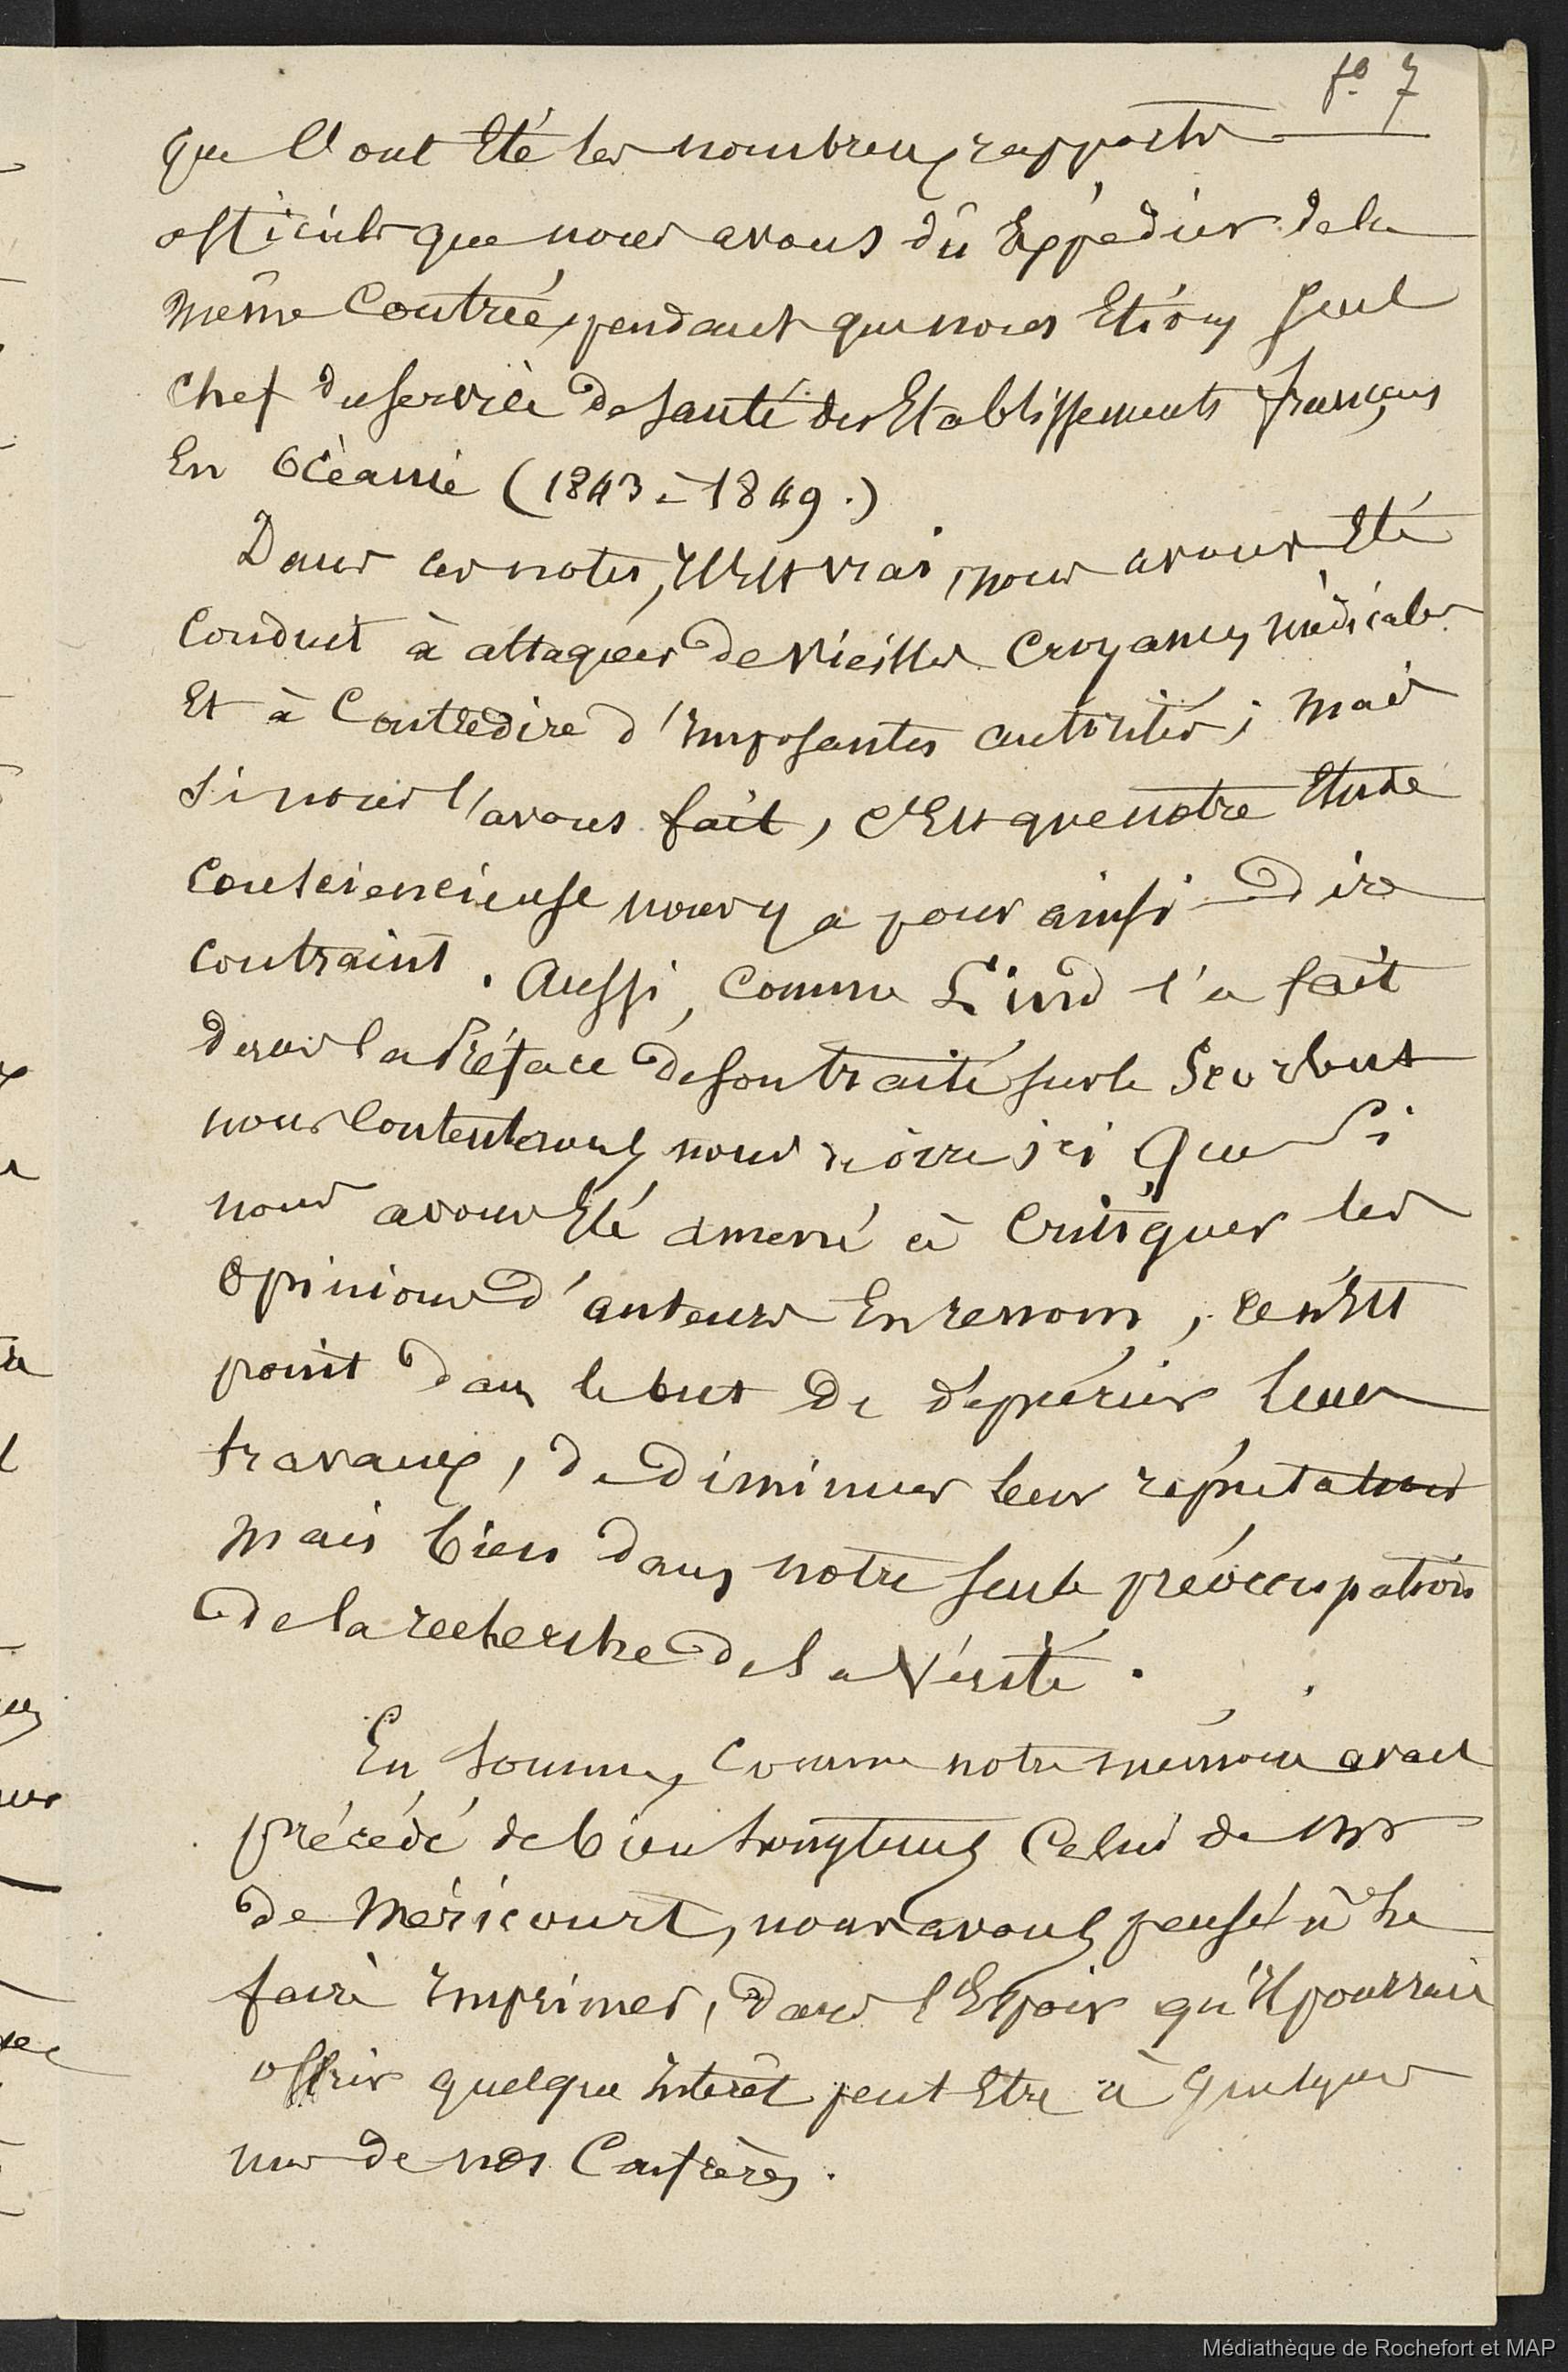 fo 7
que l'ont Eté les nombreux rapports
officiels que nous avons dû Expédier de la
même Contrée, pendant que nous Etions seul
chef du service de santé des Etablissements français
En Océanie (1843 à 1849.)
Dans ces notes, Il Est vrai, nous avons Eté
Conduit à attaquer de vieilles Croyances médicales
Et à Contredire d'Imposantes autorités; mais
si nous l'avons fait, c'Est que notre Etude
Consciencieuse nous y a pour ainsi Dire
contraint. Aussi, Comme Lind l'a fait
dans la Préface de son traité sur le Scorbut
nous Contenterons nous de dire ici Que Si
nous avons Eté amené à Critiquer les
opinions d'auteurs En renom, ce n'Est
point dans le but De déprécier leurs
travaux, de Diminuer leur réputation
Mais bien dans notre seule préoccupation
de la recherche de la Vérité.
En Somme, Comme notre mémoire avait
précédé de bien longtemps Celui de Mr
de Méricourt, nous avons pensé à le
faire Imprimer, dans l'Espoir qu'Il pourrait
offrir quelque Intérêt peut Etre à quelques
uns de nos Confrères.
Médiathèque de Rochefort et MAP